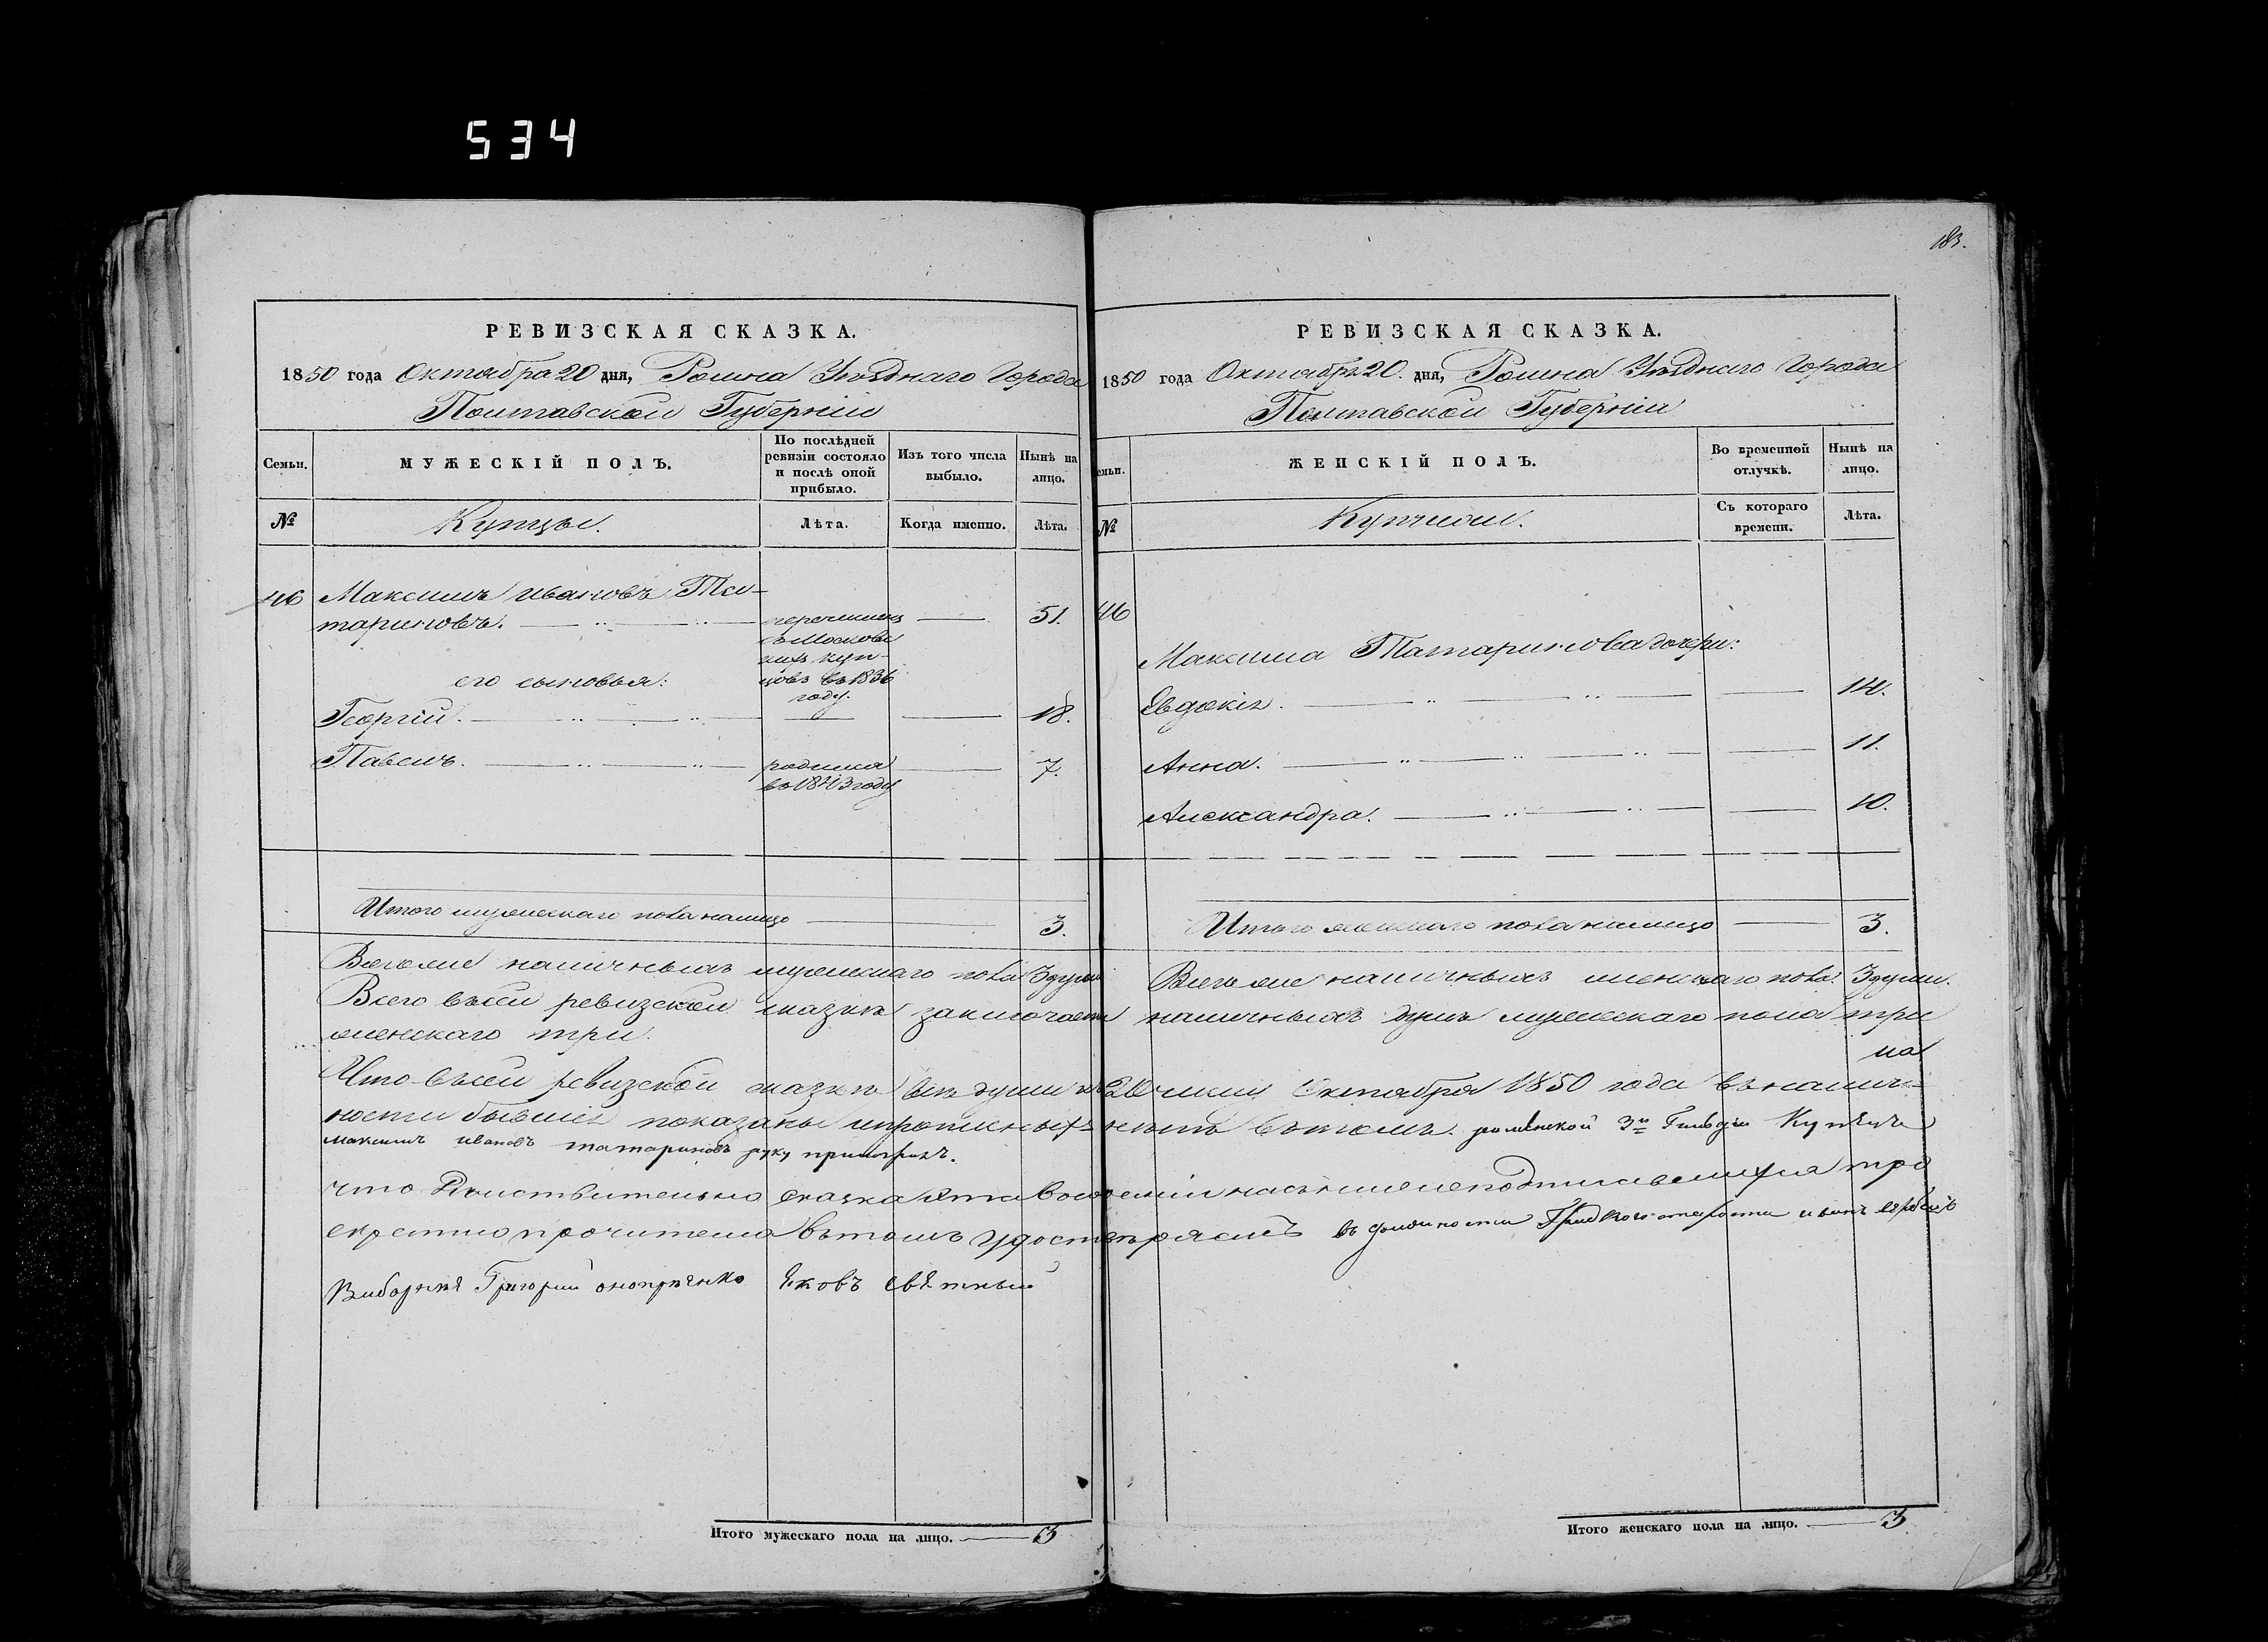 534
183.
РЕВИЗСКАЯ СКАЗКА.
1850 года Октября 20 дня, Ромна Уѣзднаго Города
Полтавской Губерніи
Семьи.
МУЖЕСКІЙ ПОЛЪ.
По послѣдней ревизіи состояло и послѣ оной прибыло.
Изъ того числа выбыло.
Нынѣ на лицо.
№
Купцы.
Лѣта.
Когда именно.
Лѣта.
46 Максимъ Ивановъ Та-
тариновъ. перечисленъ 51.
съ Московс
кихъ куп-
его сыновья: цовъ въ 1836
году.
Георгій. 18.
Павелъ. родился 7.
въ 1843 году
Итого мужескаго пола налицо 3.
РЕВИЗСКАЯ СКАЗКА.
1850 года Октября 20. дня, Ромна Уѣзднаго Города
Полтавской Губерніи
емьи.
ЖЕНСКІЙ ПОЛЪ.
Во временной отлучкѣ.
Нынѣ на лицо.
№
Купчихи.
Съ котораго времени.
Лѣта.
46
Максима Татаринова дочери:
Евдокія. 14.
Анна. 11.
Александра. 10.
Итого женскаго пола налицо 3.
Всего же наличныхъ мужескаго пола 3 души Всего же наличныхъ женскаго пола. 3 души.
Всего въ сей ревизской сказкѣ заключается наличныхъ душъ мужескаго пола три
женскаго три.
Что въ сей ревизской сказкѣ всѣ души къ 20 числу Октября 1850 года въ налич-
ности бывшія показаны и прописныхъ нѣтъ въ томъ. роменской 3й Гильдіи Купецъ
максимъ ивановъ татариновъ руку приложилъ.
что Дѣйствительно сказка эта
екратно прочитена въ томъ удостовѣряемъ въ должности
Виборнія Григорий оноприенко Яковъ Святный
Итого мужескаго пола на лицо. 3
Итого женскаго пола на лицо. 3